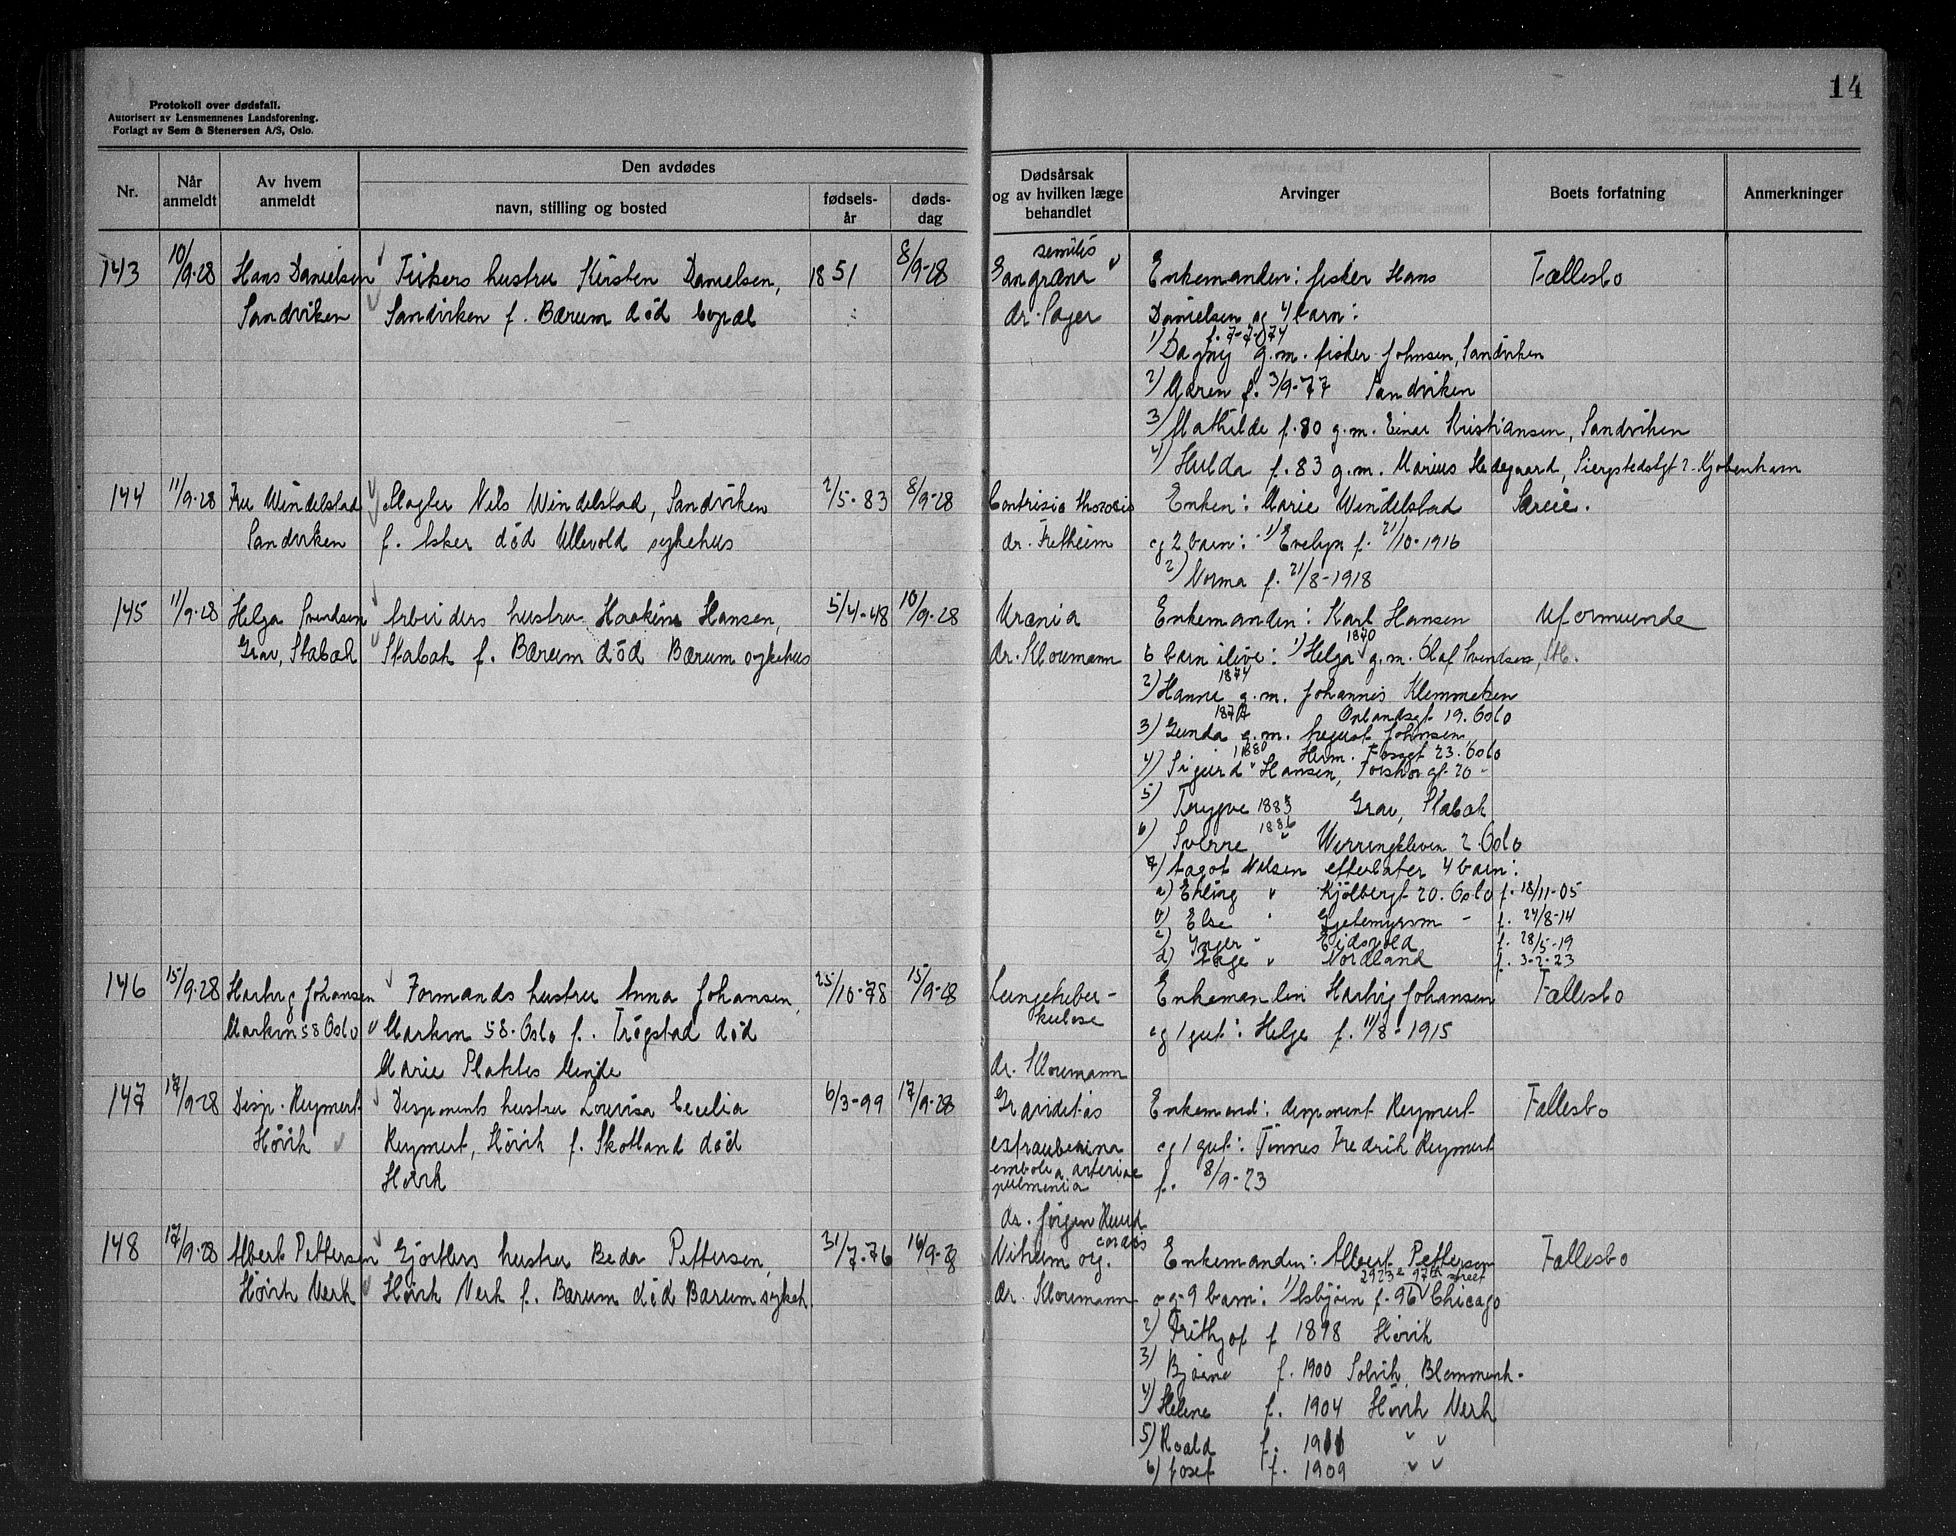 14
Protokoll over dødsfall.
Autorisert av Lensmennenes Landsforening.
Forlagt av Sem & Stenersen A/S, Oslo.
Nr.
Når anmeldt
Av hvem anmeldt
Den avdødes
navn, stilling og bosted
fødsels-år
døds-dag
Dødsårsak og av hvilken læge behandlet
Arvinger
Boets forfatning
Anmerkninger
143 10/9-28 Hans Danielsen Fiskers hustru Kirsten Danielsen, 1851 8/9-28
Sandviken Sandviken f. Bærum død
Gangræna senilis
dr. Sager
Enkemanden: fisker Hans Fællesbo
Danielsen og 4 barn:
1) Dagny f. 7-7-74 g.m. fisker Johnsen, Sandviken
2) Maren f. 3/9-77 Sandviken
3) Mathilde f. 80 g.m. Einar Kristiansen, Sandviken
4) Hulda f. 83 g.m. Marius Hedegaard, 2. Kjøbenham
144 11/9-28 Fru Windelstad Slagter Nils Windelstad, Sandviken 2/5-83 8/9-28
Sandviken f. Asker død Ullevold sykehus
Contusio thoracis
dr. Fretheim
Enken: Marie Windelstad Særeie.
og 2 barn: 1) Evelyn f. 21/10-1916
2) Norma f. 21/8-1918
145 11/9-28 Helga Svendsen Arbeiders hustru Haakine Hansen, 5/4-48 10/9-28
Grav, Stabæk Stabæk f. Bærum død Bærum sykehus
Uræmia
dr. Kloumann
Enkemanden: Karl Hansen Uformuende
6 barn ilive: 1) Helga 1870 g.m. Olaf Svendsen, Stb.
2) Hanna 1874 g.m. Johannes Klemmetsen
Orlandsgt 19. Oslo
3) Gunda 1877 g.m. August Johnsen
Herm. Fossgt 23. Oslo
4) Sigurd 1880 Hansen, Toshovgt. 20 -
5) Trygve 1883 Grav, Stabæk
6) Sverre 1886 " 2. Oslo
7) Aagot Nilsen efterlater 4 barn:
a) Erling " Kjølbergt 20. Oslo f. 18/11-05
b) Else " Gjetemyrsvn - f. 24/8-14
c) Inger " Eidsvold f. 28/5-19
d) Aage " Nordland f. 3-2-23
146 15/9-28 Hartvig Johansen Formands hustru Anna Johansen, 25/10-78 15/9-28
Markvn 58 Oslo Markvn 58. Oslo f. Trøgstad død
Marie Plahtes Minde
Lungetuber-
kulose
dr. Kloumann
Enkemanden Hartvig Johansen Fællesbo
og 1 gut: Helge f. 11/8-1915
147 17/9-28 Disp. Reymert Disponents hustru Louisa Cecilia 6/3-99 17/9-28
Høvik Reymert, Høvik f. Skotland død
Høvik
Graviditas
extrauterina
embolia arteriae
pulmonia
dr. Jørgen Ruud
Enkemand: disponent Reymert Fællesbo
og 1 gut: Tønnes Fredrik Reymert
f. 8/9-23
148 17/9-28 Albert Pettersen Gjørtlers hustru Beda Pettersen, 31/7-76 16/9-28
Høvik Verk Høvik Verk f. Bærum død Bærum sykeh.
Vitium org. cordis
dr. Kloumann
Enkemanden: Albert Pettersen Fællesbo
2923 e 97th street
og 9 barn: 1) Asbjørn f. 96 Chicago
2) Frithjof f 1898 Høvik
3) Bjarne f. 1900 Solvik, Blommenh.
4) Helene f. 1904 Høvik Verk
5) Roald f. 1911 " "
6) Josef f. 1909 " "